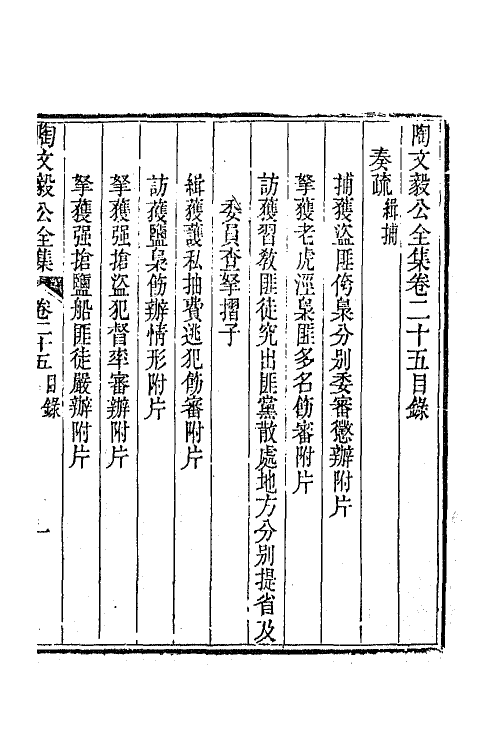 陶文毅公全集卷二十五目錄
奏疏緝捕
捕獲盜匪侉梟分别委審懲辦附片
拏獲老虎涇梟匪多名飭審附片
訪獲習教匪徒究出匪黨散處地方分别提省及
委員查拏摺子
緝獲護私抽費逃犯飭審附片
訪獲鹽梟飭辦情形附片
拏獲强搶盜犯督率審辦附片
拏獲强搶鹽船匪徒嚴辦附片
陶文毅公全集 卷二十五目錄 一